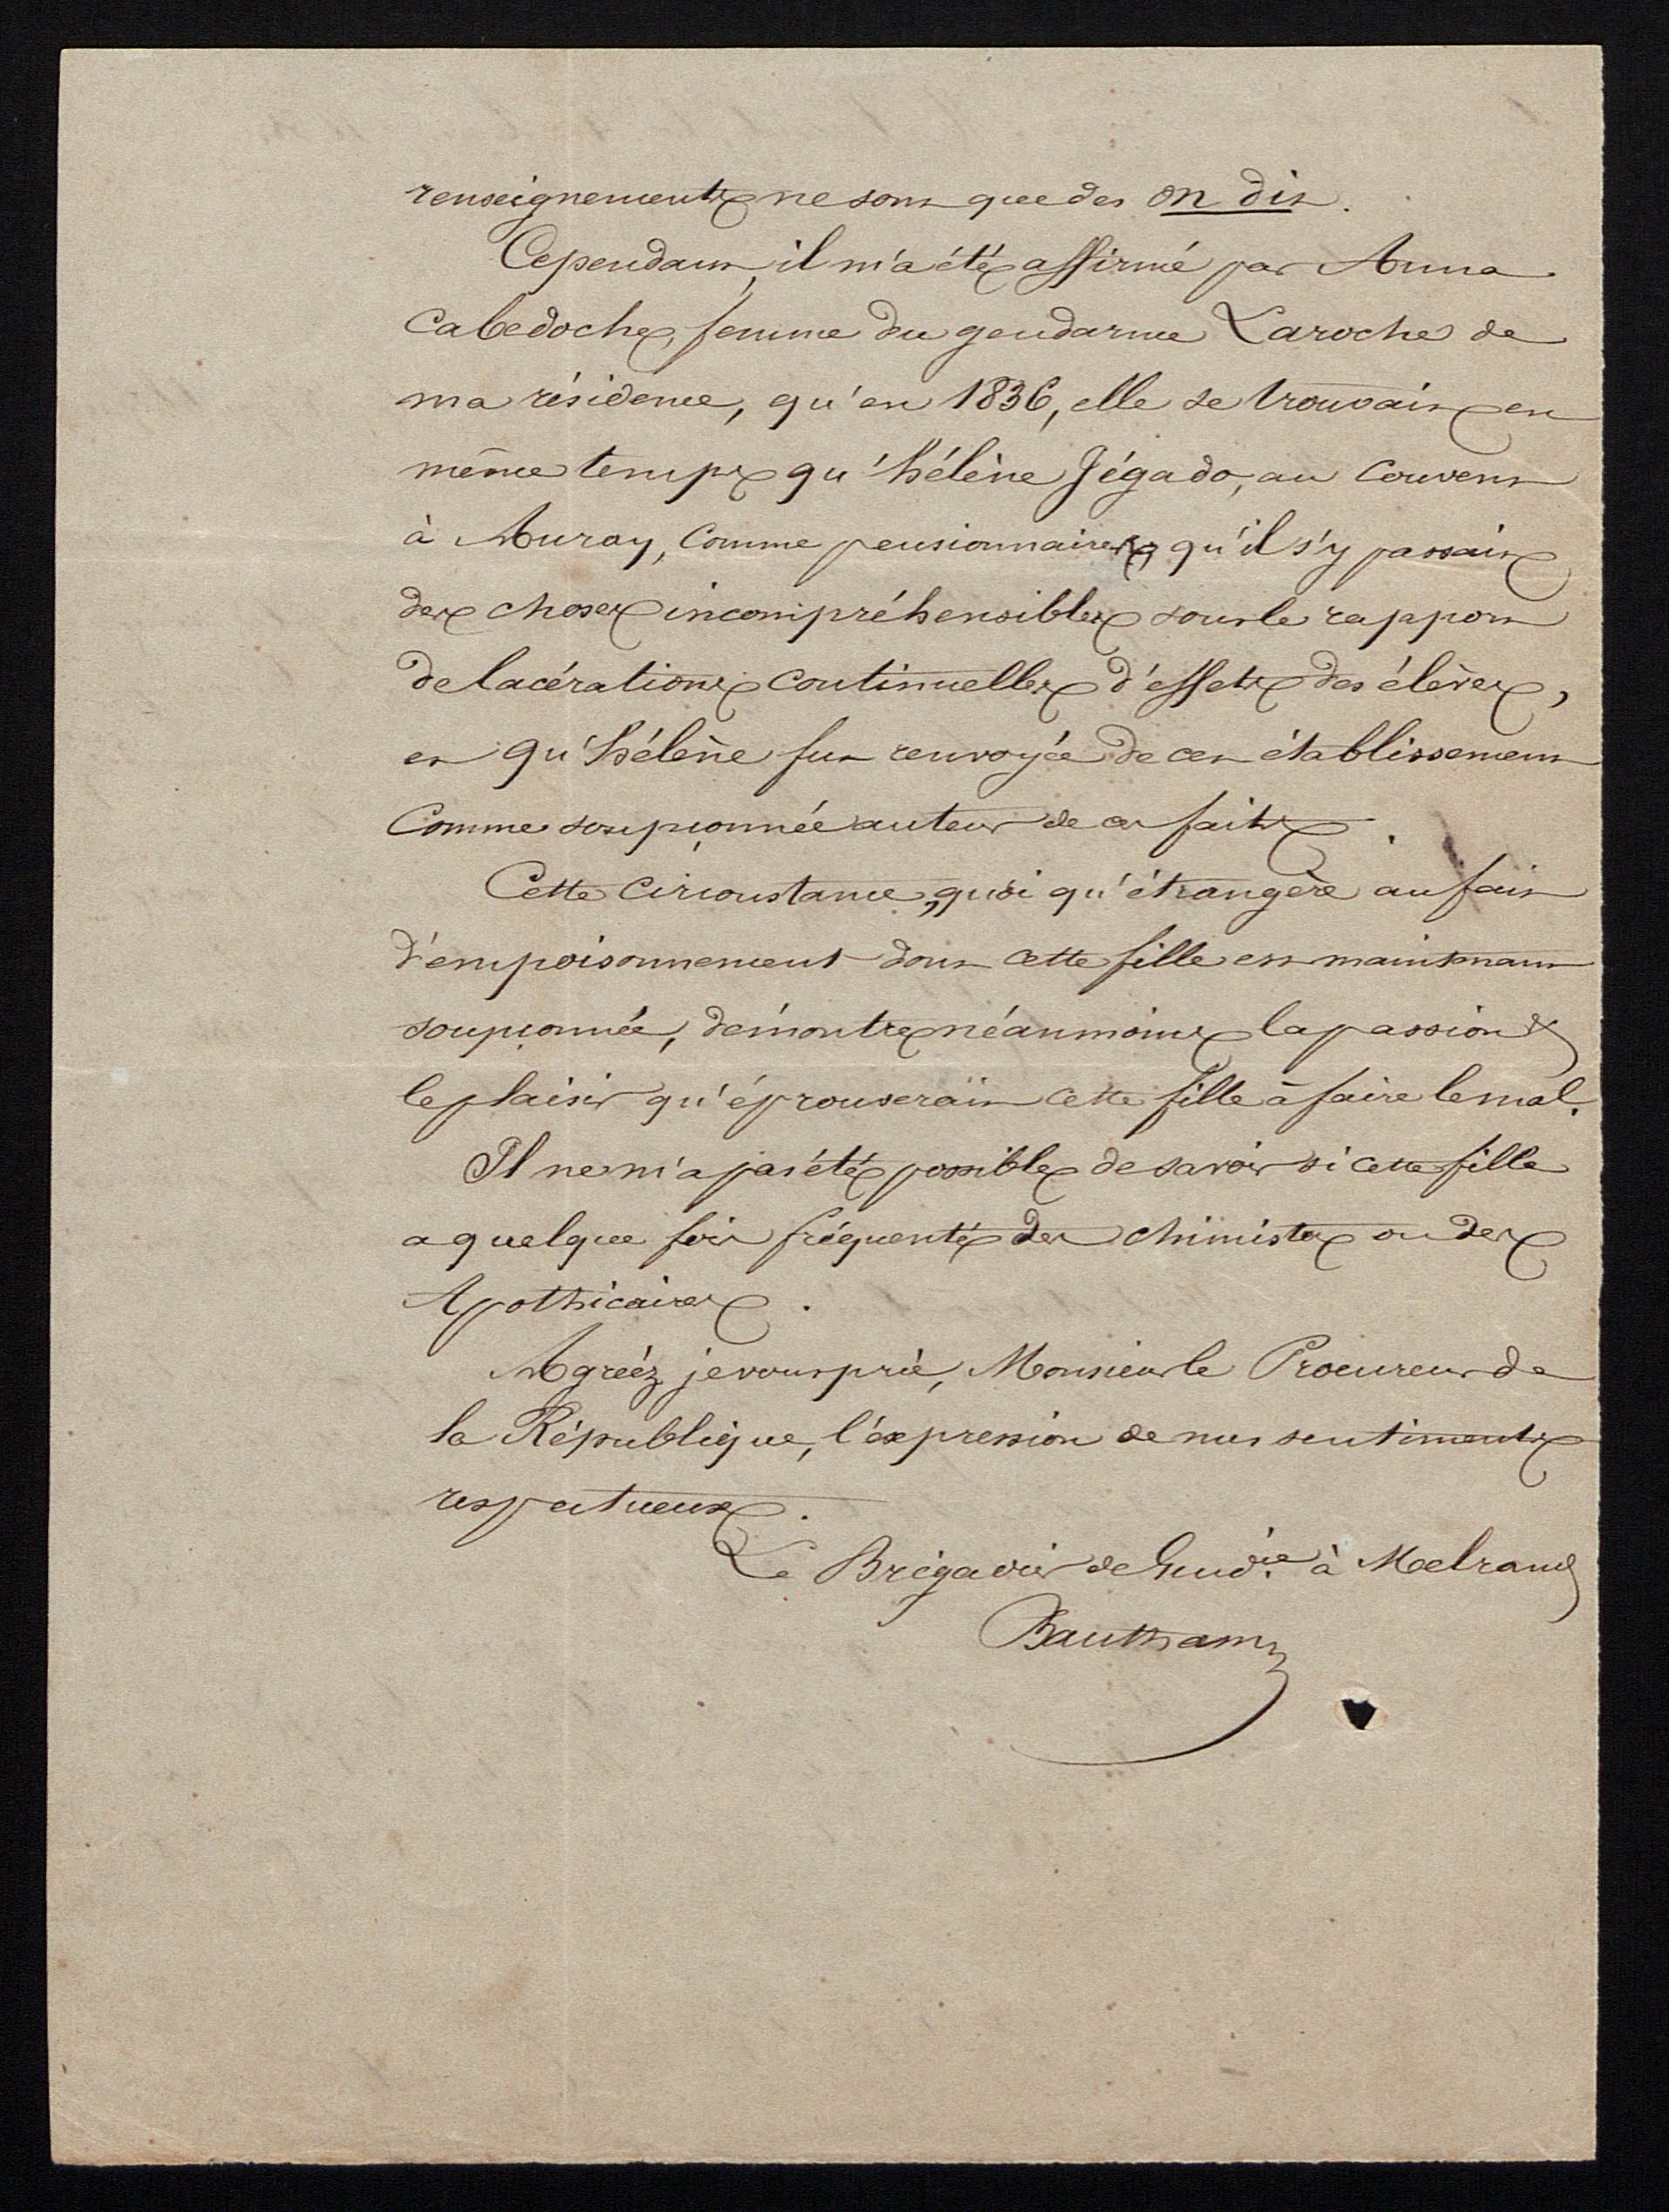 renseignements ne sont que des on dit.
Cependant, il m'a été affirmé par Anna
Cabedoche, femme du gendarme Laroche de
ma résidence, qu'en 1836, elle se trouvait en
même temps qu'hélène Jégado, au Couvent
à Auray, Comme pensionnaires, qu'il s'y passait
des choses incompréhensibles sous le rapport
de lacérations Continuelles d'effets des élèves,
et qu'hélène fut renvoyée de cet établissement
Comme soupçonnée auteur de ces faits.
Cette Circonstance, quoi qu'étrangère au fait
d'empoisonnement dont cette fille est maintenant
soupçonnée, démontre néanmoins la passion &
le plaisir qu'éprouverait cette fille à faire le mal.
Il ne m'a pas été possible de savoir si cette fille
a quelque fois fréquenté des chimistes ou des
Apothicaires.
Agréez je vous prie, Monsieur le Procureur de
la République, l'expression de mes sentiments
respectueux.
Le Brigadier de Gend.ie à Melrand